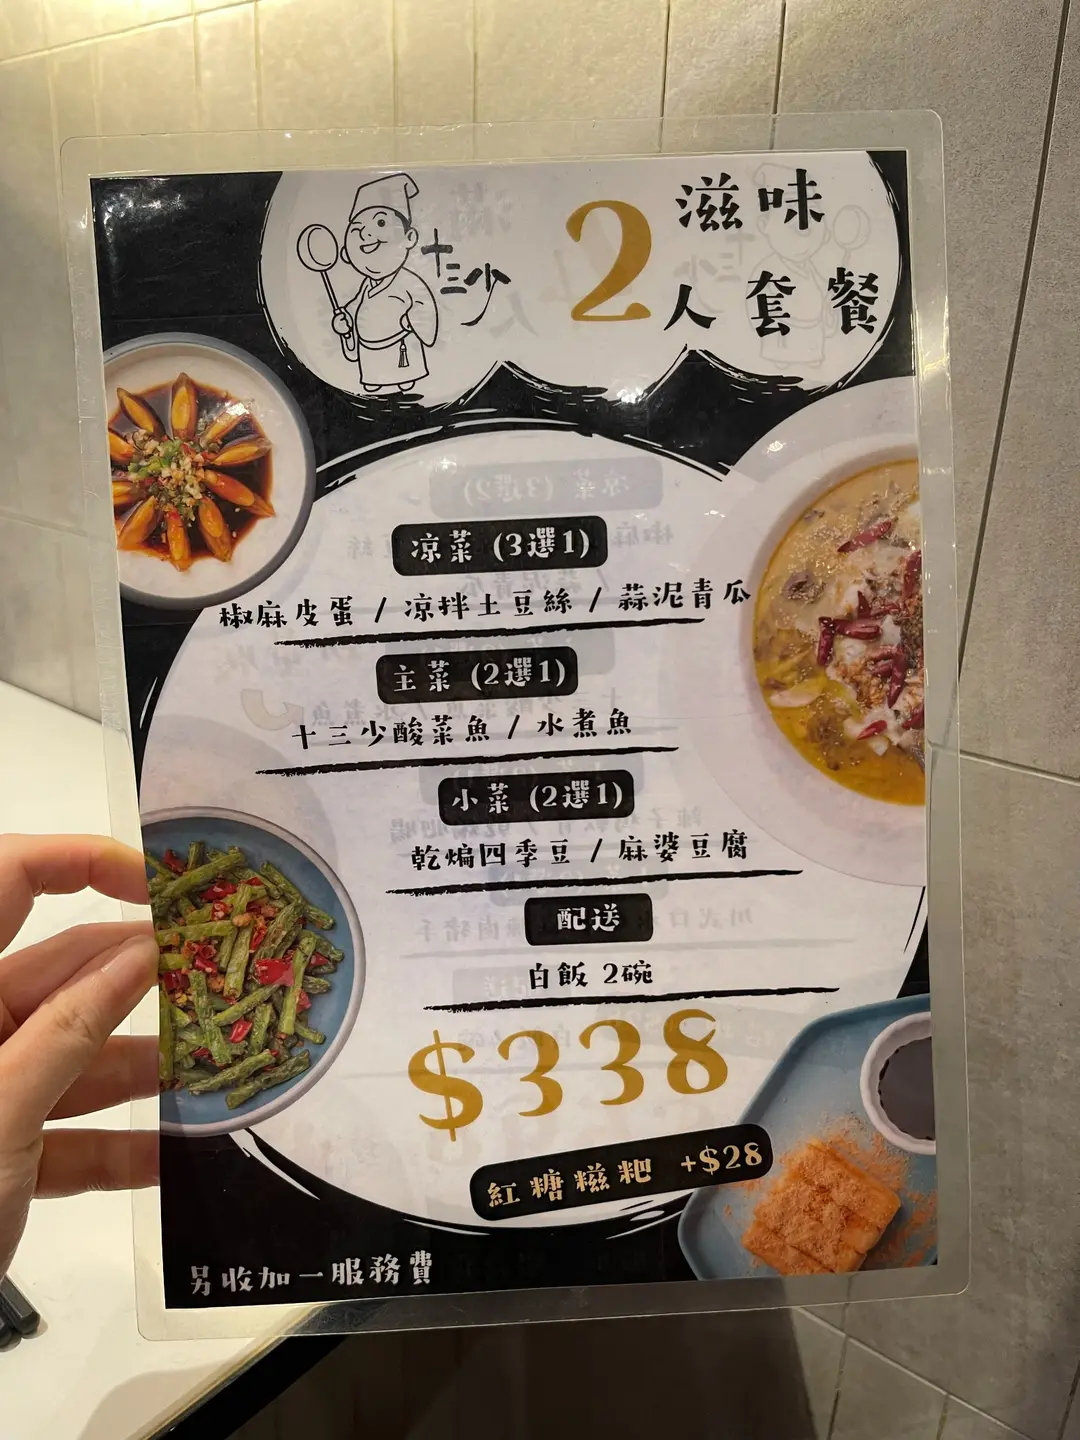 十三少
2 滋味
人套餐
凉菜 (3選1)
椒麻皮蛋 / 凉拌土豆絲 / 蒜泥青瓜
主菜 (2選1)
十三少酸菜魚 / 水煮魚
小菜 (2選1)
乾煸四季豆 / 麻婆豆腐
配送
白飯 2碗
$338
紅糖糍粑 +$28
另收加一服務費